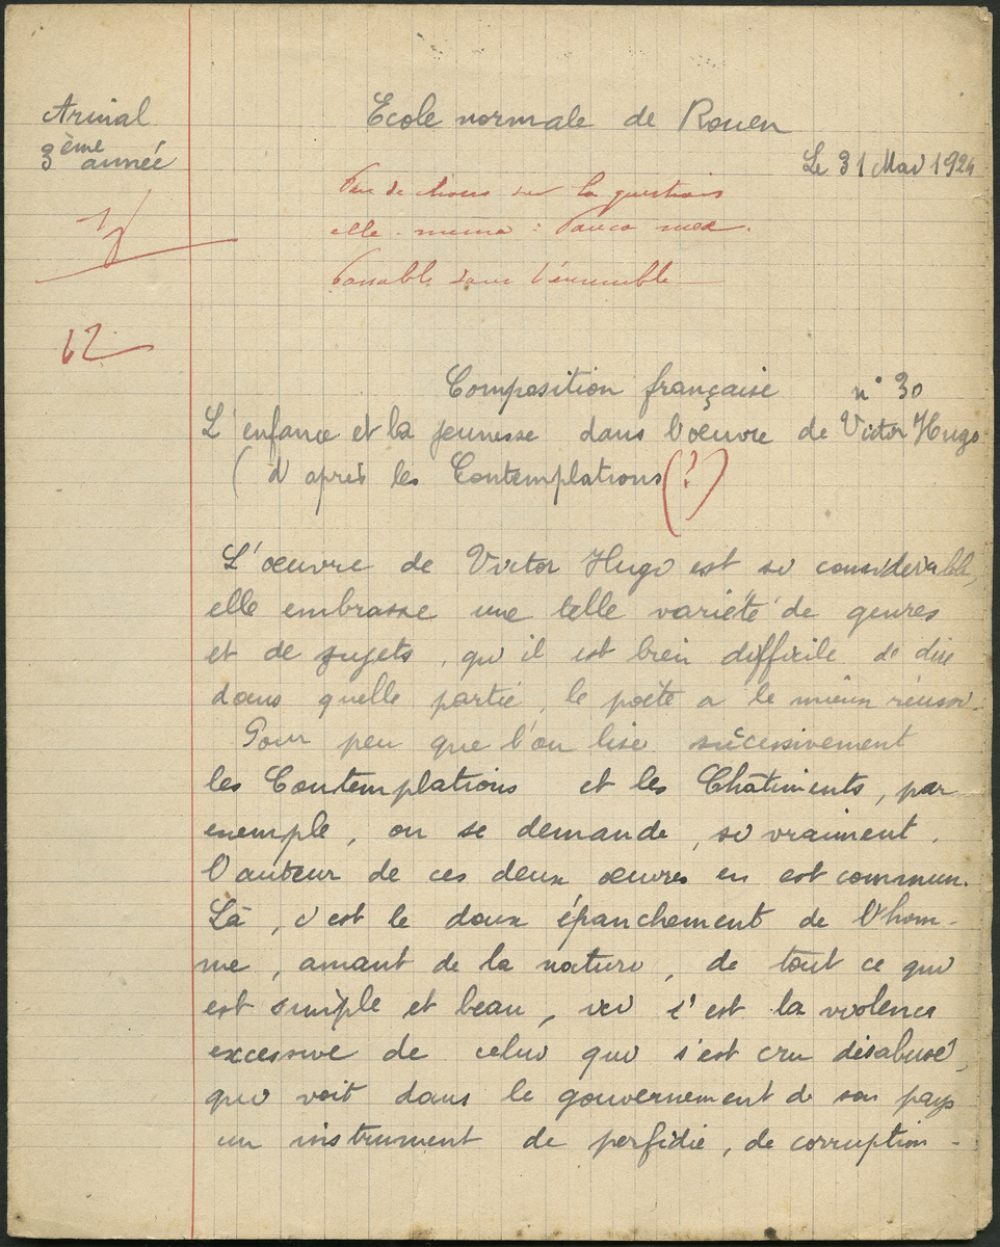 Arinal
3ème année
Ecole normale de Rouen
Le 31 Mai 1924
Peu de choses sur la question
elle-même : Pauca meæ.
Passable dans l'ensemble
12
Composition française n° 30
L'enfance et la jeunesse dans l'œuvre de Victor Hugo
(d'après les Contemplations (?)
L'œuvre de Victor Hugo est si considérable,
elle embrasse une telle variété de genres
et de sujets, qu'il est bien difficile de dire
dans quelle partie, le poète a le mieux réussi.
Pour peu que l'on lise successivement
les Contemplations et les Châtiments, par
exemple, on se demande, si vraiment,
l'auteur de ces deux œuvres en est commun.
Là, c'est le doux épanchement de l'hom-
me, amant de la nature, de tout ce qui
est simple et beau, ici c'est la violence
excessive de celui qui s'est cru désabusé,
qui voit dans le gouvernement de son pays
un instrument de perfidie, de corruption -